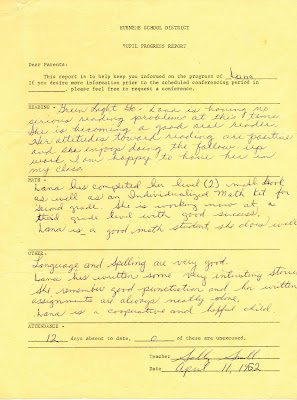 HUENEME SCHOOL DISTRICT
PUPIL PROGRESS REPORT
Dear Parents:
This report is to help keep you informed on the progress of Lana
If you desire more information prior to the scheduled conferencing period in
, please feel free to request a conference.
READING - Green Light - Lana is having no
serious reading problems at this time.
She is becoming a good oral reader.
Her attitudes toward reading are positive
and she enjoys doing the follow up
work. I am happy to have her in
my class.
MATH - Lana has completed her level (2) math book
as well as an Individualized Math kit for
second grade. She is working now at a
third grade level with good success.
Lana is a good math student, she does well
OTHER -
Language and Spelling are very good.
Lana has written some very intresting stories
She remember good punctuation and her written
assignments are always neatly done.
Lana is a cooperative and helpful child.
ATTENDANCE -
12 days absent to date, 0 of these are unexcused.
Teacher Sally
Date April 11, 1962